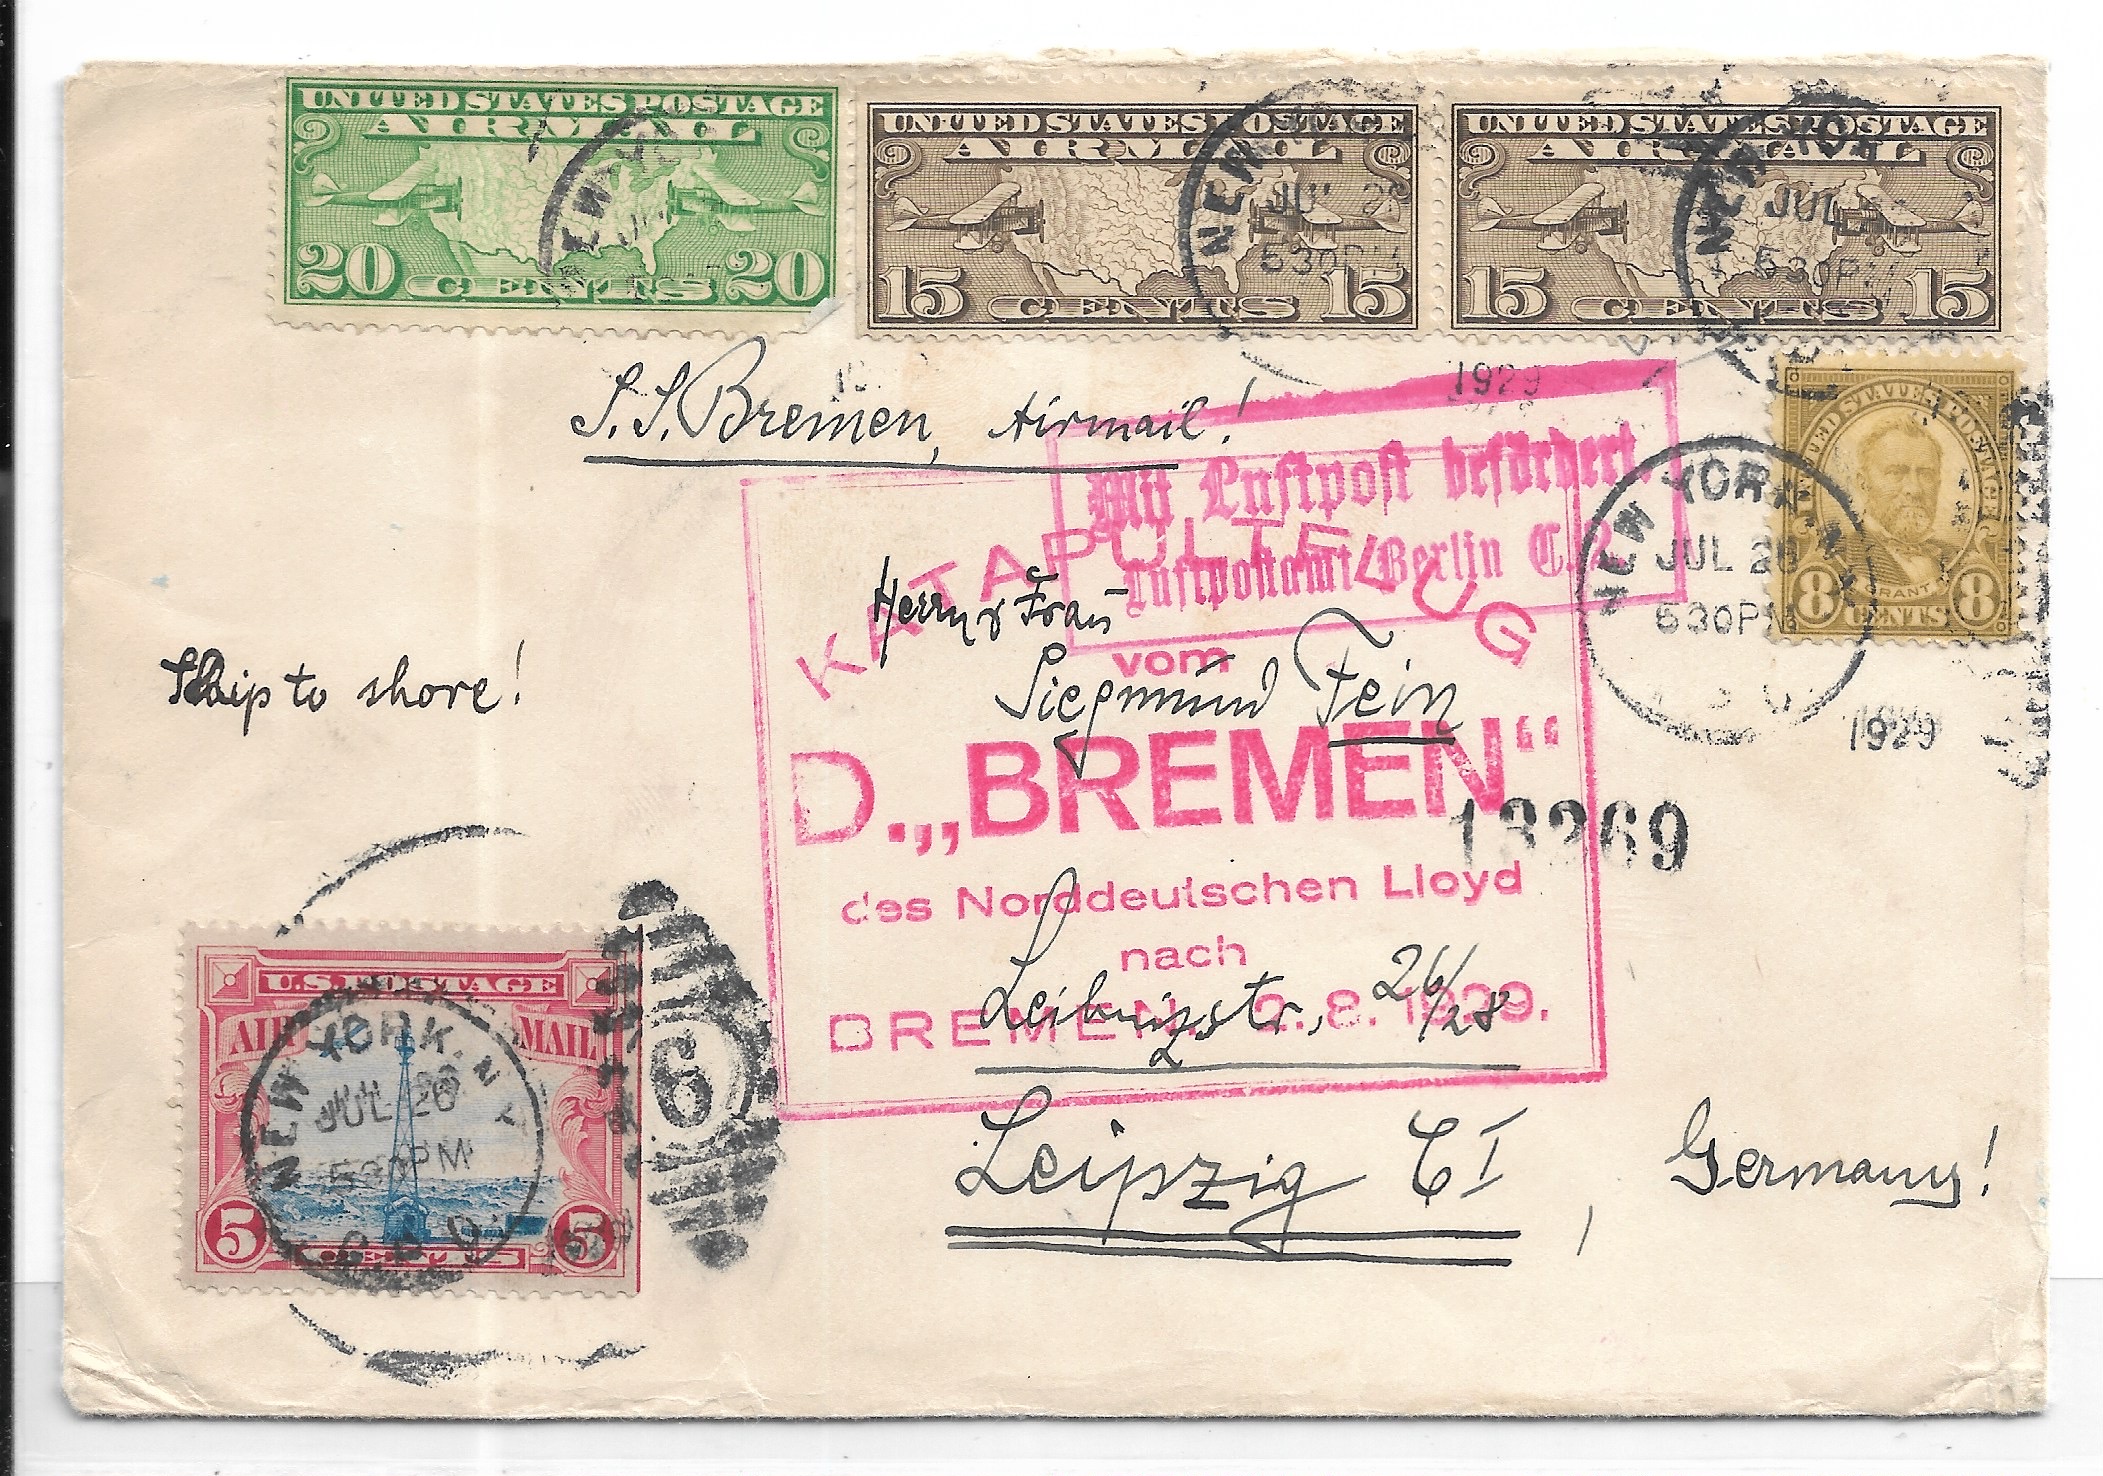 UNITED STATES POSTAGE
AIR MAIL
20 CENTS 20
UNITED STATES POSTAGE
AIR MAIL
15 CENTS 15
UNITED STATES POSTAGE
AIR MAIL
15 CENTS 15
NEW YORK
JUL
NEW
JUL 26
530PM
1929
NEW YORK
JUL
530PM
S.S. Bremen, Airmail!
Mit Luftpost befördert
Luftpostamt Berlin C.2
UNITED STATES POSTAGE
GRANT
8 CENTS 8
NEW YORK
JUL 26
530PM
1929
KATAPULTFLUG
vom
D. „BREMEN“
des Norddeutschen Lloyd
nach
BREMEN 2.8.1929.
Ship to shore!
Herrn & Frau
Siegmund Fein
13269
Leibnizstr. 26/28
Leipzig C I, Germany!
U.S. POSTAGE
AIR MAIL
5 CENTS 5
NEW YORK, N.Y.
JUL 26
530PM
6